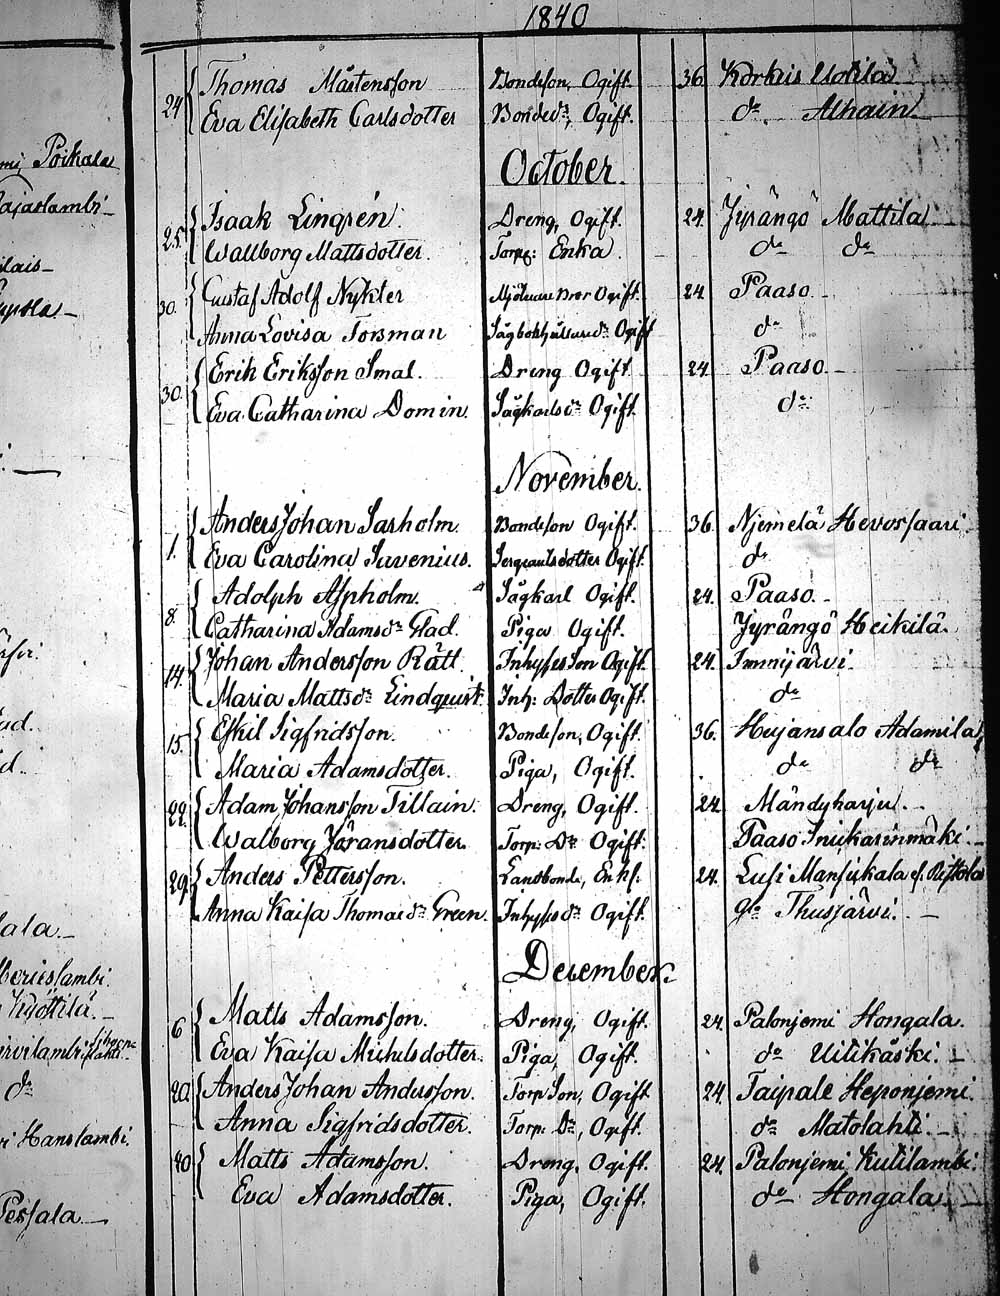 1840
24 Thomas Mårtensson Bondeson, Ogift. 36. Korkis Uotila
Eva Elisabeth Carlsdotter Bonded:r, Ogift. d:o Alhain.
October.
25. Isaak Linqrén. Dreng, Ogift. 24. Jyrängö Mattila
Wallborg Mattsdotter. Torp: Enka. d:o d:o
30. Gustaf Adolf Nykter Mjölnare Bror Ogift. 24 Paaso
Anna Lovisa Forsman Ogift d:o
30. Erik Eriksson Smal. Dreng Ogift 24. Paaso
Eva Catharina Domin. Sågkarlsd:r Ogift. d:o
November.
1. Anders Johan Sarholm. Bondeson Ogift. 36. Njemelä Hevossaari
Eva Carolina Juvenius. Sergeantsdotter Ogift. d:o
8. Adolph Aspholm. Sågkarl Ogift. 24. Paaso.
Catharina Adamsd:r Glad. Piga Ogift. Jyrängö Heikilä.
14. Johan Andersson Rätt. Inhyses Son Ogift. 24. Imnijärvi.
Maria Mattsd:r Lindquist. Inh: Dotter Ogift. d:o
15. Eskil Sigfridsson. Bondeson, Ogift. 36. Hujansalo Adamila
Maria Adamsdotter. Piga, Ogift. d:o d:o
22. Adam Johansson Tillain. Dreng, Ogift. 24 Mändyharju.
Walborg Jöransdotter. Torp: D:r Ogift. Paaso
29. Anders Pettersson. Landbonde, Enkl. 24. Lusi
Anna Kaisa Thomasd:r Green. Inhysesd:r Ogift. Thusjärvi.
December.
6 Matts Adamsson. Dreng, Ogift. 24. Palonjemi Hongala.
Eva Kaisa Michelsdotter. Piga, Ogift. d:o Uitikäski.
20. Anders Johan Andersson. Torp Son, Ogift. 24 Taipale Heponjemi.
Anna Sigfridsdotter. Torp: D:r, Ogift. d:o Matolahti.
20 Matts Adamsson. Dreng, Ogift. 24. Palonjemi Kutilambi.
Eva Adamsdotter. Piga, Ogift. d:o Hongala
Poikala
d:o
Hanslambi.